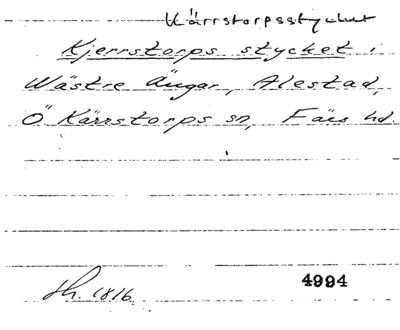 Kärrstorpsstycket
Kjerrstorps stycket i
Wästre Ängar, Alestad,
Ö Kärrstorps sn, Färs hd.
Sk. 1816. 4994